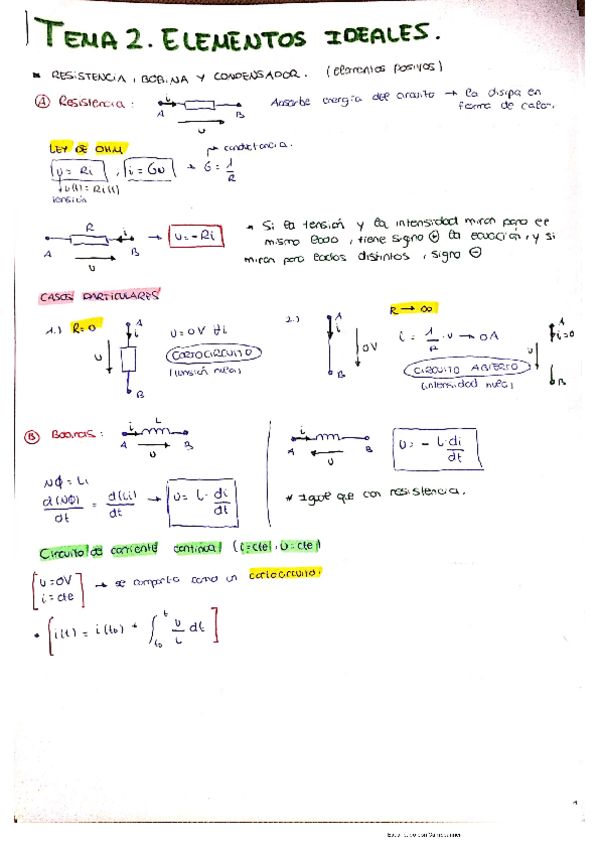 TEMA 2. ELEMENTOS IDEALES.
RESISTENCIA, BOBINA Y CONDENSADOR. (elementos pasivos)
A Resistencia: i A B u Absorbe energía del circuito → la disipa en
forma de calor.
LEY DE OHM
→ conductancia.
u = Ri , i = Gu → G = 1/R
u(t) = Ri(t)
tensión
R i A B u → u = -Ri
* Si la tensión y la intensidad miran para el
mismo lado, tiene signo ⊕ la ecuación, y si
miran para lados distintos, signo ⊖
CASOS PARTICULARES
1.) R=0 A i u B
u = 0V ∀i
CORTOCIRCUITO
(tensión nula)
2.) A i 0V B
R → ∞
i = 1/R · u → 0A
CIRCUITO ABIERTO
(intensidad nula)
A i=0 u B
B Bobinas: i L A B u
NΦ = Li
d(NΦ)/dt = d(Li)/dt → u = L · di/dt
i A B u
u = - L · di/dt
* Igual que con resistencia.
Circuito de corriente continua (i=cte, u=cte)
u = 0V
i = cte
→ se comporta como un cortocircuito.
• i(t) = i(t₀) + ∫ t₀ t u/L dt
1